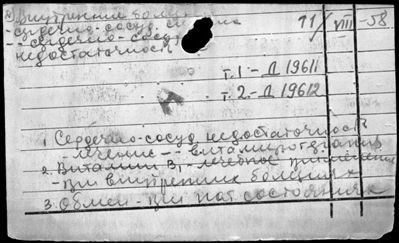 внутренн болезн
- сердечно-сосуд. система
-- сердечно-сосуд
недостаточность
11/VIII-58
т.1 - Д 19611
т.2 - Д 19612
А
1. Сердечно-сосуд недостаточность
- лечение -- витаминотерапия
2. Витамин B1 - лечебное применение
- при внутренних болезнях
3. Обмен - при пат состояниях